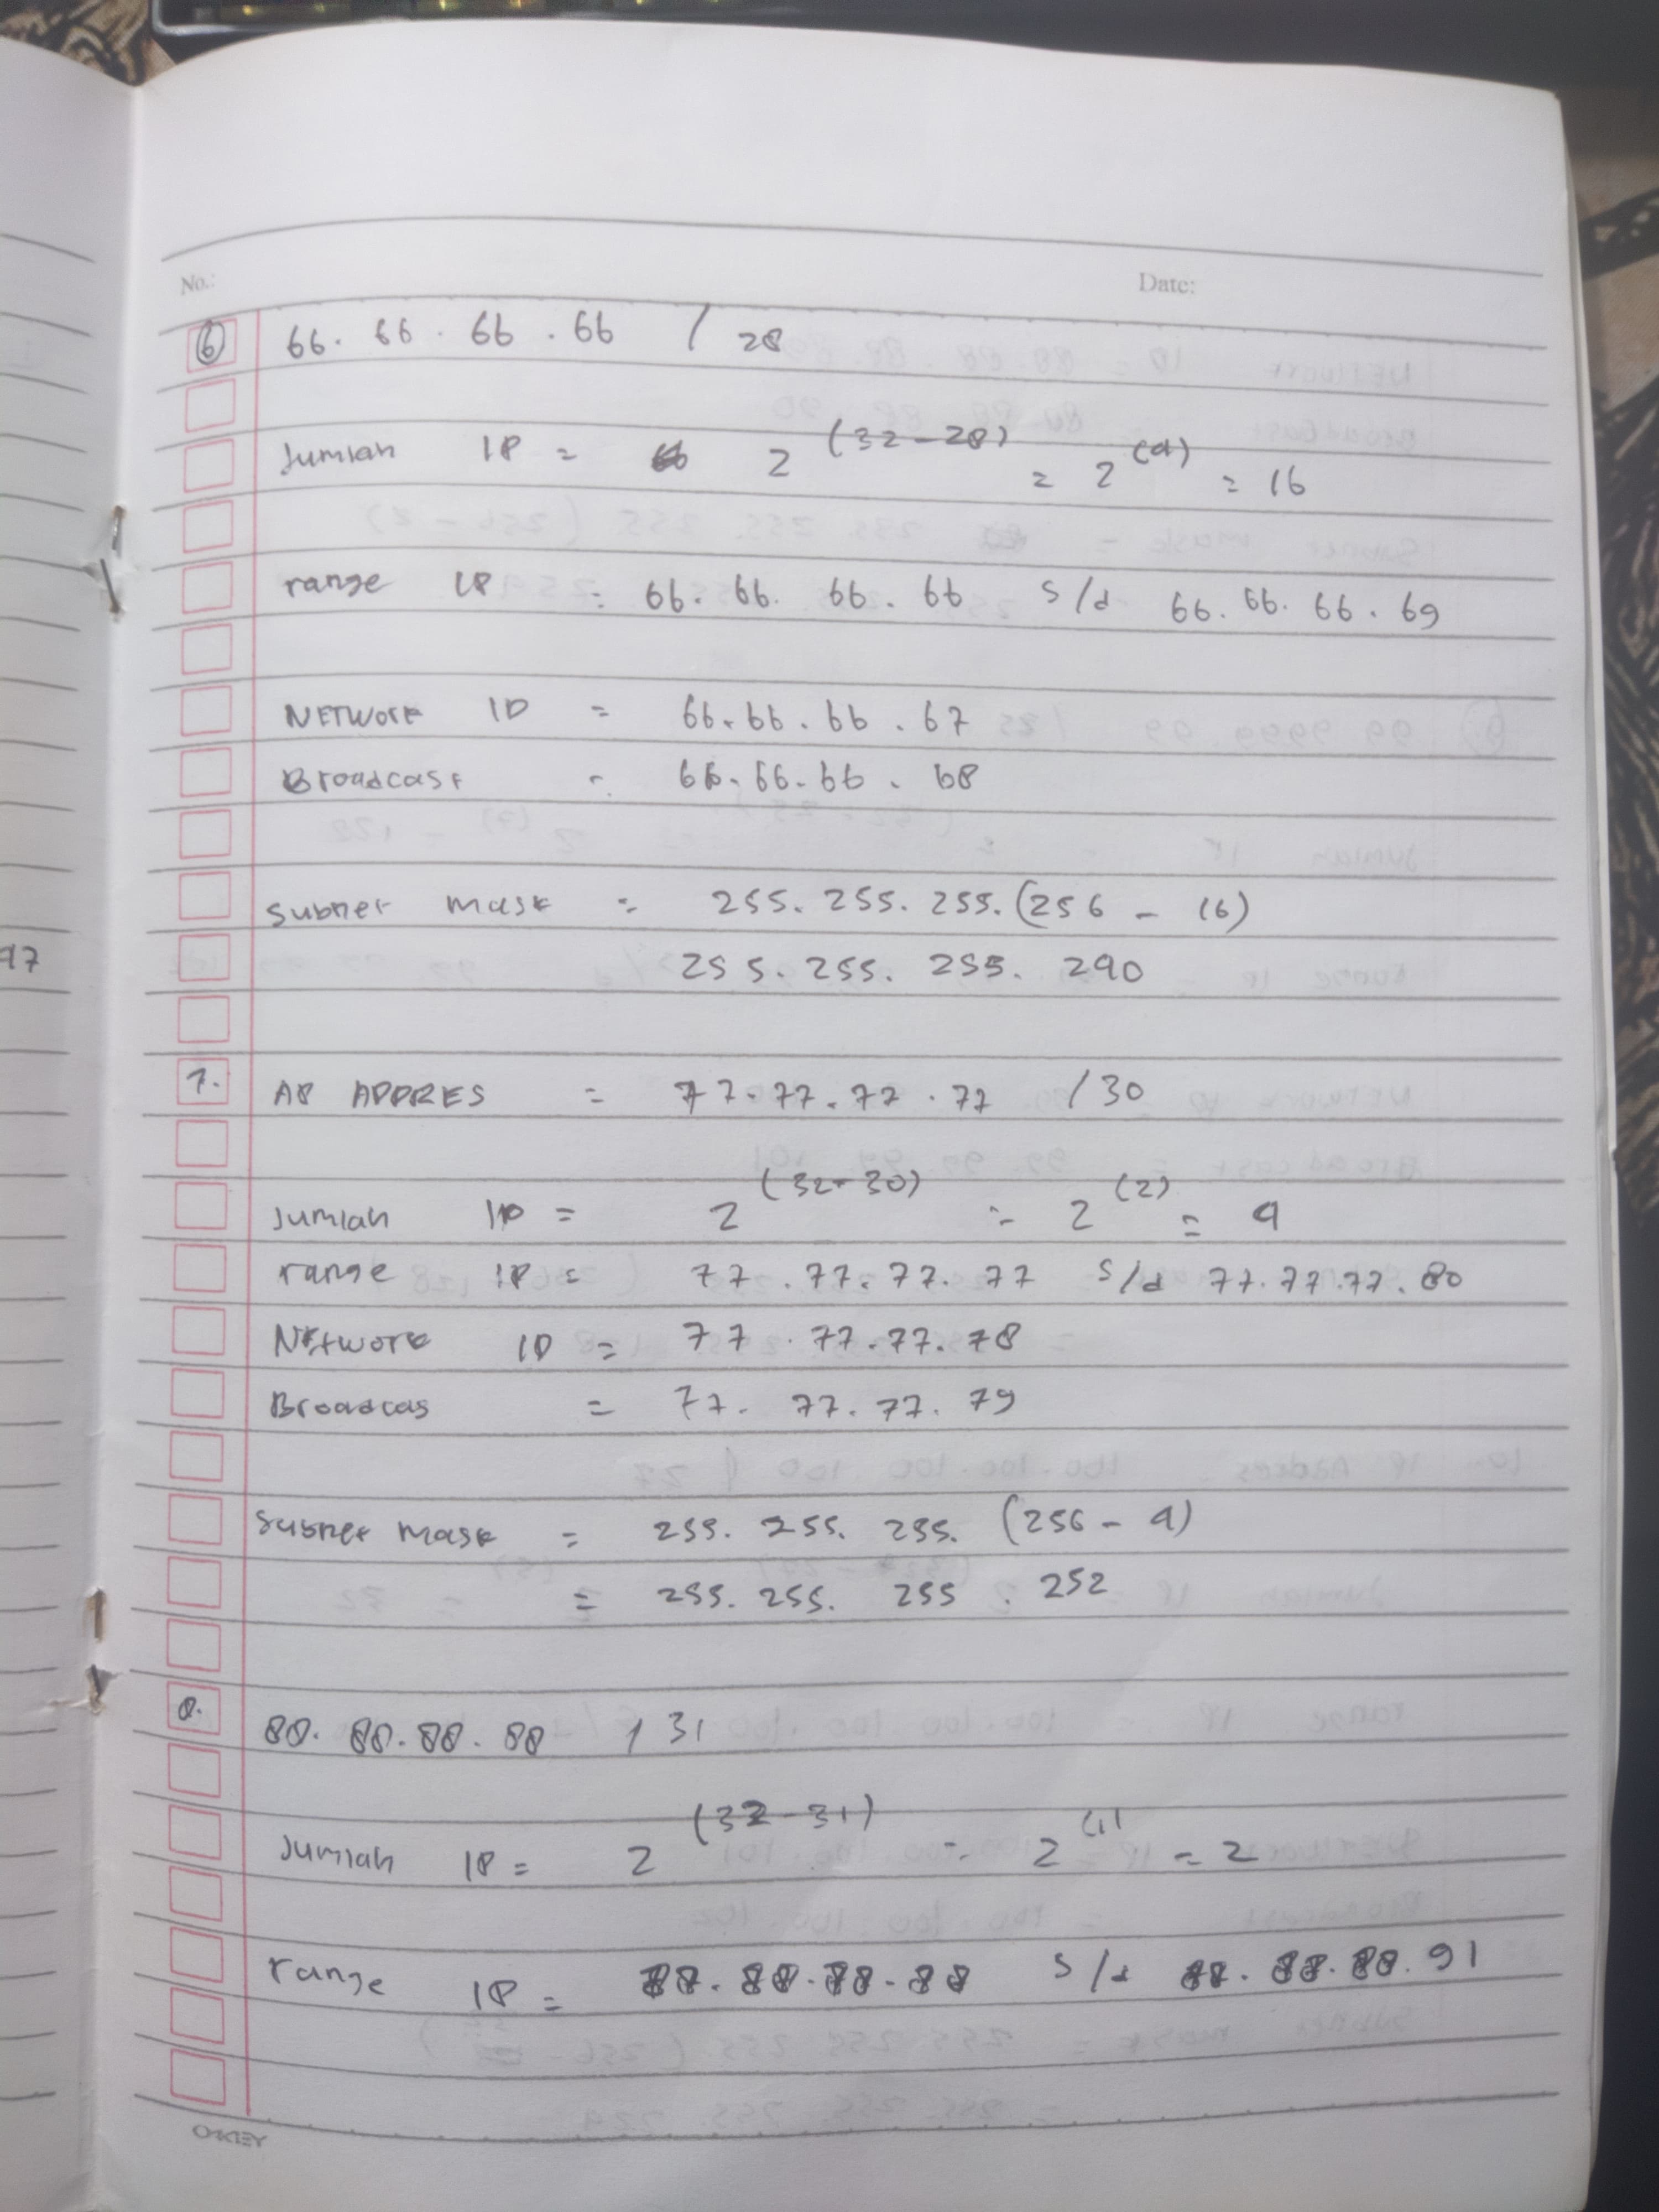 No.:
Date:
6 66. 66. 66. 66 / 28
Jumlah IP = 2 (32-28) = 2 (4) = 16
range IP = 66. 66. 66. 66 s/d 66. 66. 66. 69
NETWORK ID = 66. 66. 66. 67
Broadcast = 66. 66. 66. 68
subnet mask = 255. 255. 255. (256 - 16)
255. 255. 255. 240
47
7. AP ADDRES = 77. 77. 77. 77 /30
Jumlah IP = 2 (32-30) = 2 (2) = 4
range IP = 77. 77. 77. 77 s/d 77. 77. 77. 80
Network ID = 77. 77. 77. 78
Broadcas = 77. 77. 77. 79
subnet mask = 255. 255. 255. (256 - 4)
= 255. 255. 255. 252
8. 88. 88. 88. 88 / 31
Jumlah IP = 2 (32-31) = 2 (1) = 2
range IP = 88. 88. 88. 88 s/d 88. 88. 88. 91
OAKLEY